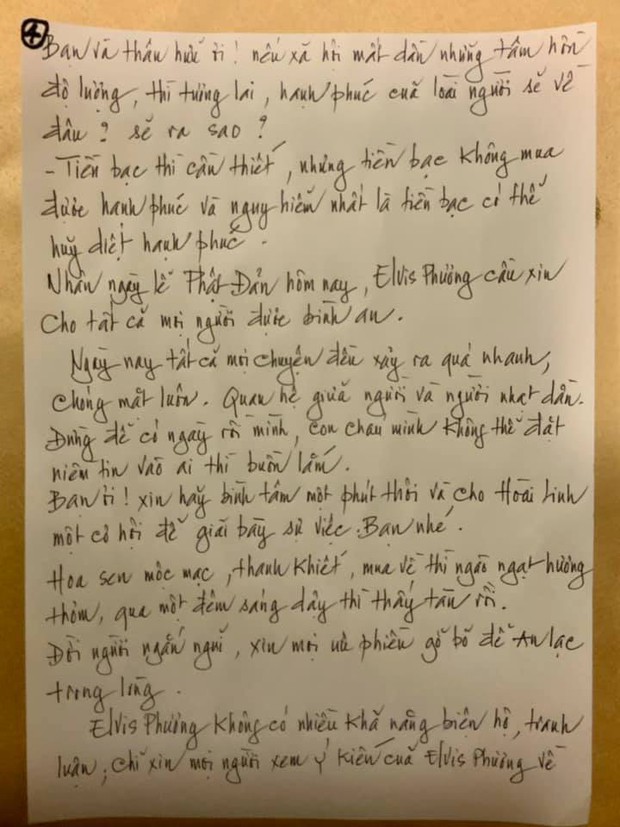 4
Bạn và thân hữu ơi! nếu xã hội mất dần những tâm hồn
độ lượng, thì tương lai, hạnh phúc của loài người sẽ về
đâu? sẽ ra sao?
- Tiền bạc thì cần thiết, nhưng tiền bạc không mua
được hạnh phúc và nguy hiểm nhất là tiền bạc có thể
huỷ diệt hạnh phúc.
Nhân ngày lễ Phật Đản hôm nay, Elvis Phương cầu xin
cho tất cả mọi người được bình an.
Ngày nay tất cả mọi chuyện đều xảy ra quá nhanh,
chóng mặt luôn. Quan hệ giữa người và người nhạt dần.
Đừng để có ngày rồi mình, con cháu mình không thể đặt
niềm tin vào ai thì buồn lắm.
Bạn ơi! xin hãy bình tâm một phút thôi và cho Hoài Linh
một cơ hội để giải bày sự việc. Bạn nhé.
Hoa sen mộc mạc, thanh khiết, mua về thì ngào ngạt hương
thơm, qua một đêm sáng dậy thì thấy tàn rồi.
Đời người ngắn ngủi, xin mọi ưu phiền gỡ bỏ để An lạc
trong lòng.
Elvis Phương không có nhiều khả năng biện hộ, tranh
luận, chỉ xin mọi người xem ý kiến của Elvis Phương về